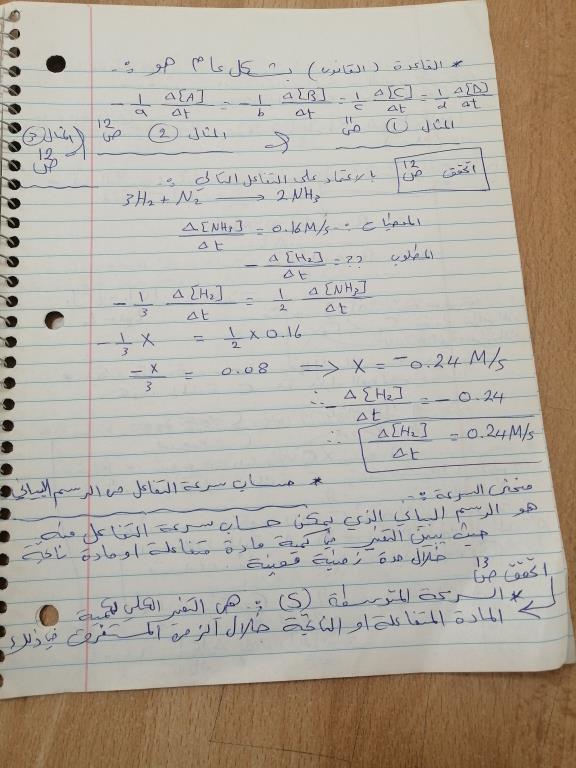 * القاعدة (القانون) بشكل عام هو :-
-1/a Δ[A]/Δt = -1/b Δ[B]/Δt = 1/c Δ[C]/Δt = 1/d Δ[D]/Δt
المثال ① ص11 المثال ② ص12 المثال ③ ص12
اتحقق ص12 بالاعتماد على التفاعل التالي :-
3H₂ + N₂ ⟶ 2NH₃
المعطيات :- Δ[NH₃]/Δt = 0.16 M/s
المطلوب ؟؟ = -Δ[H₂]/Δt
-1/3 Δ[H₂]/Δt = 1/2 Δ[NH₃]/Δt
-1/3 X = 1/2 × 0.16
-X/3 = 0.08 ⟹ X = -0.24 M/s
∴ -Δ[H₂]/Δt = -0.24
∴ Δ[H₂]/Δt = 0.24 M/s
* حساب سرعة التفاعل من الرسم البياني
منحنى السرعة :-
هو الرسم البياني الذي يمكن حساب سرعة التفاعل منه
حيث يبين التغير في كمية مادة متفاعلة او مادة ناتجة
خلال مدة زمنية معينة.
اتحقق ص13
* السرعة المتوسطة (S) :- هي التغير الكلي لكمية
المادة المتفاعلة او الناتجة خلال الزمن المستغرق في ذلك